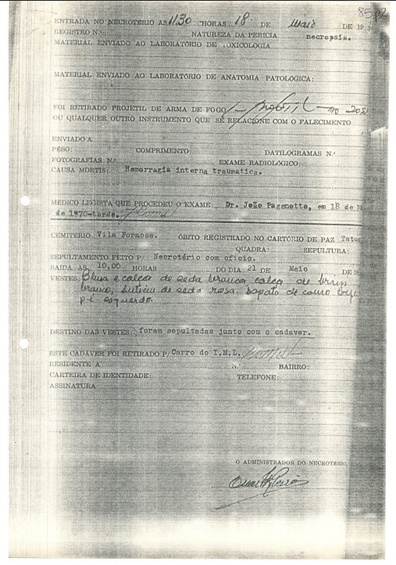 8512
ENTRADA NO NECROTÉRIO AS 11:30 HORAS 18 DE maio DE 19
REGISTRO N.º NATUREZA DA PERICIA necropsia.
MATERIAL ENVIADO AO LABORATÓRIO DE TOXICOLOGIA
MATERIAL ENVIADO AO LABORATÓRIO DE ANATOMIA PATOLÓGICA:
FOI RETIRADO PROJETIL DE ARMA DE FOGO
OU QUALQUER OUTRO INSTRUMENTO QUE SE RELACIONE COM O FALECIMENTO
ENVIADO A
PÊSO: COMPRIMENTO DATILOGRAMAS N.º
FOTOGRAFIAS N.º EXAME RADIOLÓGICO:
CAUSA MORTIS: Hemorragia interna traumatica.
MÉDICO LEGISTA QUE PROCEDEU O EXAME: Dr. João Pagenotto, em 18 de
de 1970-tarde.
CEMITÉRIO Vila Formosa. ÓBITO REGISTRADO NO CARTÓRIO DE PAZ Tatua
QUADRA: SEPULTURA:
SEPULTAMENTO FEITO P/ Necrotério com oficio.
SAÍDA AS 10,00 HORAS DO DIA 21 DE Maio DE
VESTES: Blusa e calça de seda branca, calça de brim
branco, sutien de seda rosa. Sapato de couro
pé esquerdo.
DESTINO DAS VESTES: foram sepultadas junto com o cadaver.
ESTE CADAVER FOI RETIRADO P/ Carro do I.M.L.
RESIDENTE A N.º BAIRRO:
CARTEIRA DE IDENTIDADE: TELEFONE:
ASSINATURA
O ADMINISTRADOR DO NECROTÉRIO